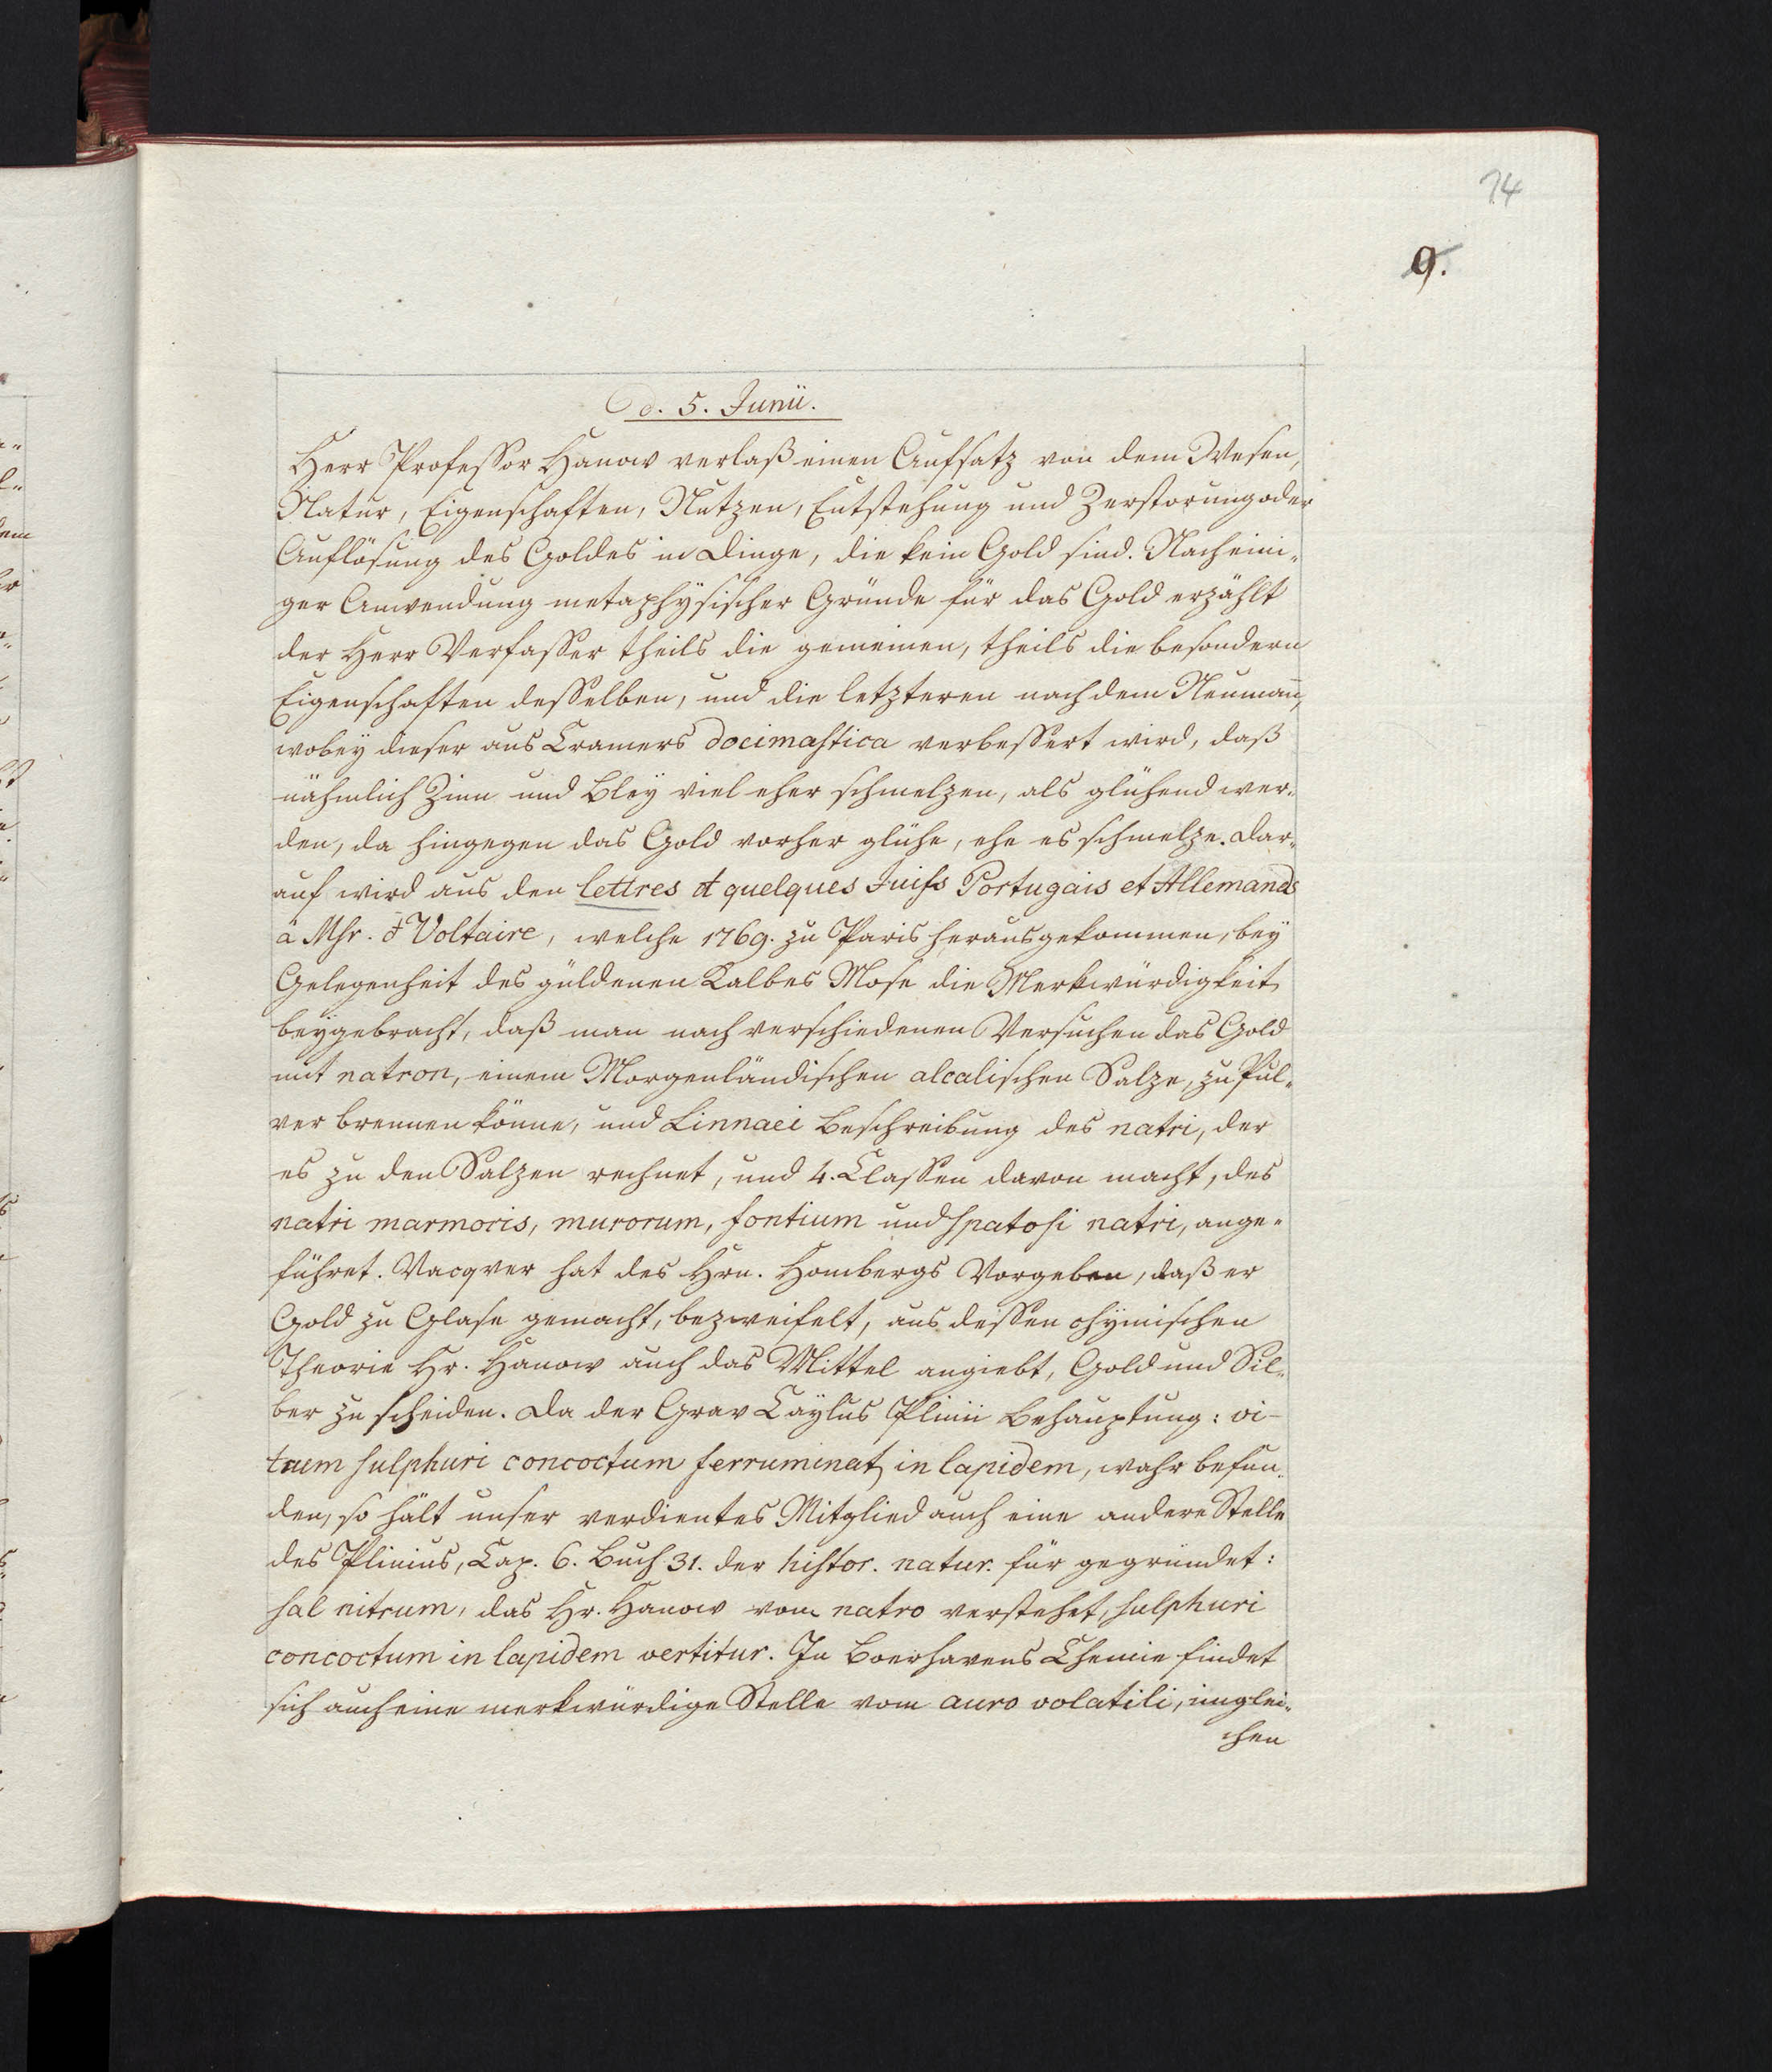 74
9.
d. 5. Junii.
Herr Professor Hanow verlaß einen Aufsatz von dem Wesen,
Natur, Eigenschaften, Nutzen, Entstehung und Zerstorung oder
Auflösung des Goldes in Dinge, die kein Gold sind. Nach eini„
ger Anwendung metaphÿsischer Gründe für das Gold erzählt
der Herr Verfasser theils die gemeinen, theils die besondern
Eigenschaften desselben, und die letzteren nach dem Neumañ,
wobeÿ dieser aus Cramers docimastica verbessert wird, daß
nähmlich Zinn und Bleÿ viel eher schmelzen, als glühend wer„
den, da hingegen das Gold vorher glühe, ehe es schmelze. Dar„
auf wird aus den lettres d quelques Juifs Portugais et Allemands
à Msr. d Voltaire, welche 1769. zu Paris herausgekommen, beÿ
Gelegenheit des güldenen Kalbes Mose die Merkwürdigkeit
beÿgebracht, daß man nach verschiedenen Versuchen das Gold
mit natron, einem Morgenländischen alcalischen Salze, zu Pul„
ver brennen könne, und Linnaei Beschreibung des natri, der
es zu den Salzen rechnet, und 4. Classen davon macht, des
natri marmoris, murorum, fontium und spatosi natri, ange„
führet. Vacqver hat des Hrn. Hombergs Vorgeben, daß er
Gold zu Glase gemacht, bezweifelt, aus dessen chÿmischen
Theorie Hr. Hanow auch das Mittel angiebt, Gold und Sil„
ber zu scheiden. Da der Grav Caÿlus Plinii Behauptung: vi-
trum sulphuri concoctum ferruminat, in lapidem, wahr befun„
den, so hält unser verdientes Mitglied auch eine andere Stelle
des Plinius, Cap. 6. Buch 31. der histor. natur. für gegründet:
sal nitrum, das Hr. Hanow vom natro verstehet, sulphuri
concoctum in lapidem vertitur. In Boerhavens Chemie findet
sich auch eine merkwürdige Stelle vom auro volatili, imglei„
chen